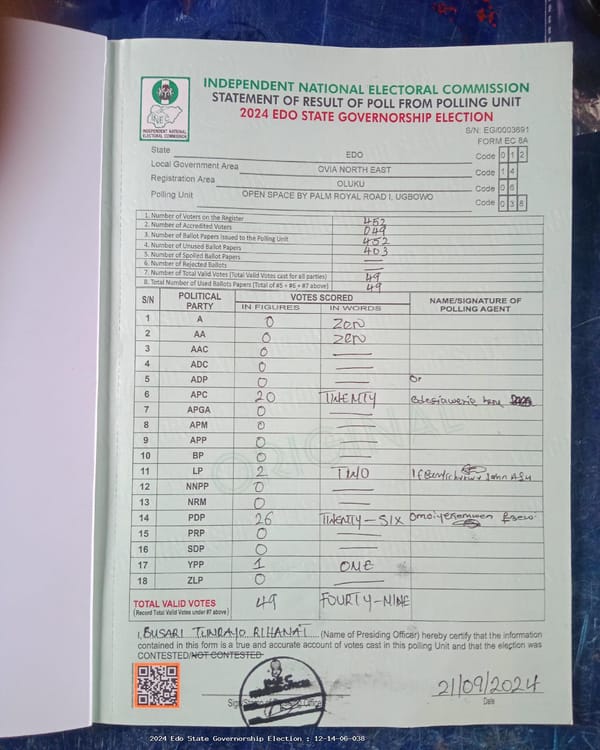 INDEPENDENT NATIONAL ELECTORAL COMMISSION
STATEMENT OF RESULT OF POLL FROM POLLING UNIT
2024 EDO STATE GOVERNORSHIP ELECTION
INEC
INDEPENDENT NATIONAL ELECTORAL COMMISSION
S/N: EG/0003691
FORM EC 8A
State EDO Code 0 1 2
Local Government Area OVIA NORTH EAST Code 1 4
Registration Area OLUKU Code 0 6
Polling Unit OPEN SPACE BY PALM ROYAL ROAD I, UGBOWO Code 0 3 8
1. Number of Voters on the Register 452
2. Number of Accredited Voters 049
3. Number of Ballot Papers issued to the Polling Unit 452
4. Number of Unused Ballot Papers 403
5. Number of Spoiled Ballot Papers —
6. Number of Rejected Ballots —
7. Number of Total Valid Votes (Total Valid Votes cast for all parties) 49
8. Total Number of Used Ballots Papers (Total of #5 + #6 + #7 above) 49
S/N POLITICAL PARTY VOTES SCORED NAME/SIGNATURE OF POLLING AGENT
IN FIGURES IN WORDS
1 A 0 Zero
2 AA 0 Zero
3 AAC 0 —
4 ADC 0 —
5 ADP 0 —
6 APC 20 TWENTY
7 APGA 0 —
8 APM 0 —
9 APP 0 —
10 BP 0 —
11 LP 2 TWO John
12 NNPP 0 —
13 NRM 0 —
14 PDP 26 TWENTY-SIX
15 PRP 0 —
16 SDP 0 —
17 YPP 1 ONE
18 ZLP 0 —
TOTAL VALID VOTES 49 FOURTY-NINE
(Record Total Valid Votes under #7 above)
ORIGINAL
I, BUSARI TUNRAYO RIHANAT (Name of Presiding Officer) hereby certify that the information
contained in this form is a true and accurate account of votes cast in this polling Unit and that the election was
CONTESTED/NOT CONTESTED
21/09/2024
Date
2024 Edo State Governorship Election : 12-14-06-038